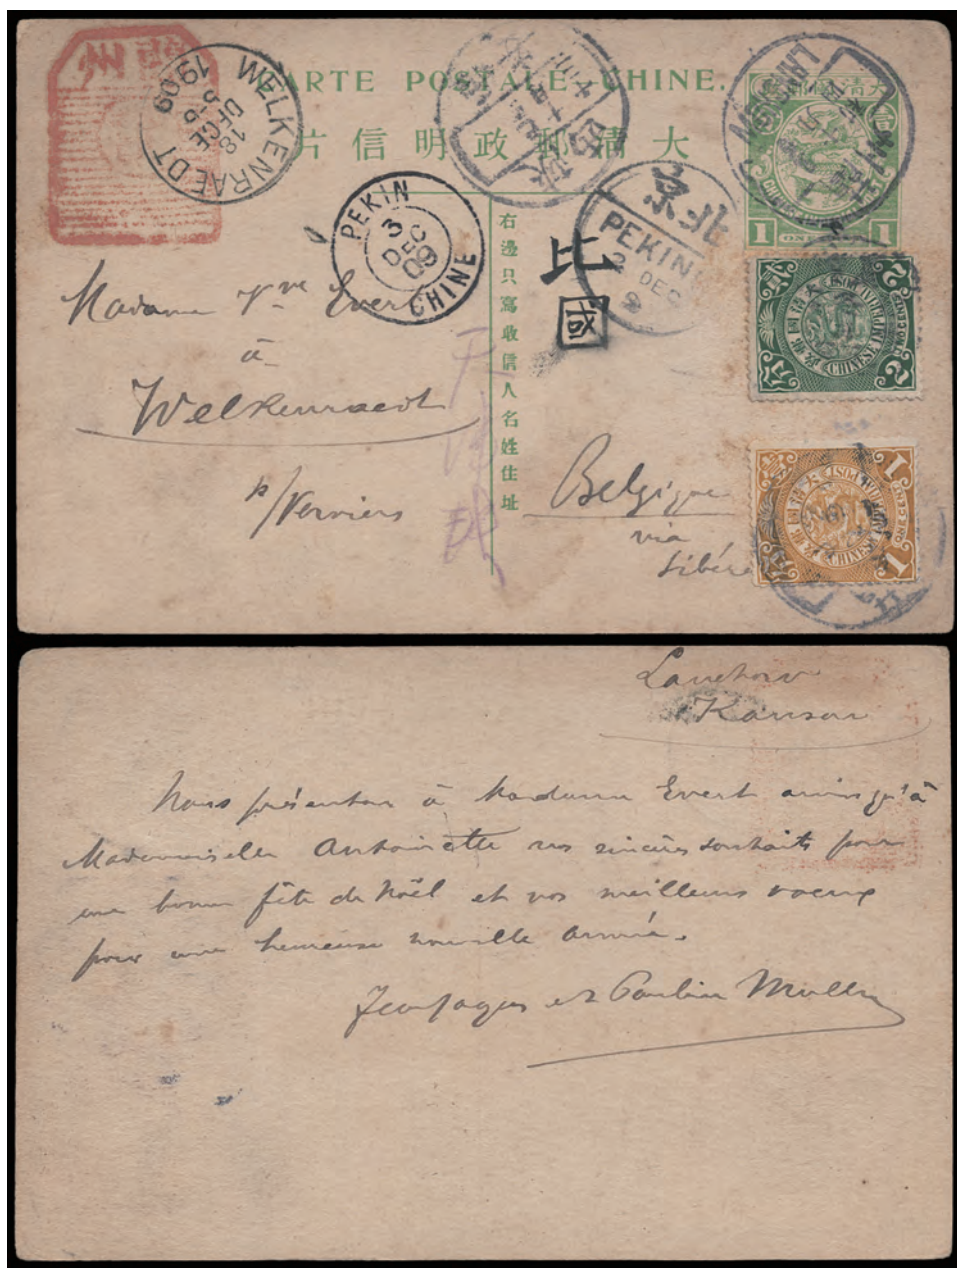 CARTE POSTALE-CHINE.
大清郵政明信片
右邊只寫收信人名姓住址
WELKENRAEDT
18 DECE
1909
PEKIN
3
DEC
09
CHINE
北京
PEKING
2
DEC
比
國
大清郵政
1
1
2
2
CHINESE IMPERIAL POST
1
1
ONE CENT
CHINESE IMPERIAL POST
Madame Vve Evert
à
Welkenraedt
p/Verviers
Belgique
via
Sibérie
Lanchow
Kansou
Nous présentons à Madame Evert ainsi qu'à
Mademoiselle Antoinette nos sincères souhaits pour
une bonne fête de Noël et nos meilleurs voeux
pour une heureuse nouvelle année.
et Paulin